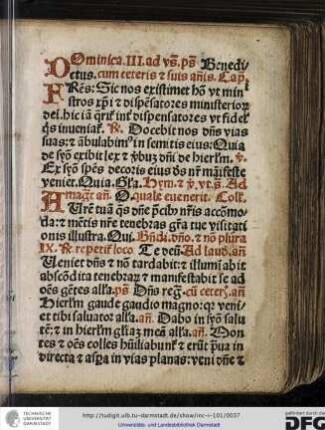 DOminica.III.ad vs̄.ps̄ Benedi
ctus.cum ceteris ⁊ suis añis.Cap̄
FRēs: Sic nos existimet hō vt mini
stros xp̄i ⁊ dispēsatores ministerioꝝ
dei.hic iā q̄rit̄ int̄ dispensatores vt fidel̄
q̄s inueniat̄. ℟. Docebit nos dn̄s vias
suas: ⁊ ābulabim⁹ in semitis eius: Quia
de syō exibit lex ⁊ v̄buꝫ dn̄i de hierl̄m. ℣.
Ex syō spēs decoris eius d̄s nr̄ māifeste
veniet. Quia. Gl̄a. Hym. ⁊ ℣. vt s̄. Ad
magt̄ añ. O. quale euenerit. Coll̄.
AUrē tuā q̄s dn̄e p̄cib⁹ nr̄is accōmo
da: ⁊ mētis nr̄e tenebras gr̄a tue visitati
onis illustra. Qui. Bn̄di. dn̄o. ⁊ nō plura
IX. ℟ repetit̄ loco Te deū. Ad laud̄. añ
Ueniet dn̄s ⁊ nō tardabit: ⁊ illumīabit
abscōdita tenebraꝝ ⁊ manifestabit se ad
oēs gētes all̄a. ps̄ Dn̄s reḡ. cū ceter̄. añ
Hierl̄m gaude gaudio magno: q̄ꝛ veni
et tibi saluator all̄a. añ. Dabo in syō salu
tē: ⁊ in hierl̄m gl̄iaꝫ meā all̄a. añ. Mon
tes ⁊ oēs colles hūiliabunt̄ ⁊ erūt p̄ua in
directa ⁊ asp̄a in vias planas: veni dn̄e ⁊
TECHNISCHE
UNIVERSITÄT
DARMSTADT
http://tudigit.ulb.tu-darmstadt.de/show/inc-i-101/0037
Universitäts- und Landesbibliothek Darmstadt
gefördert durch die
DFG